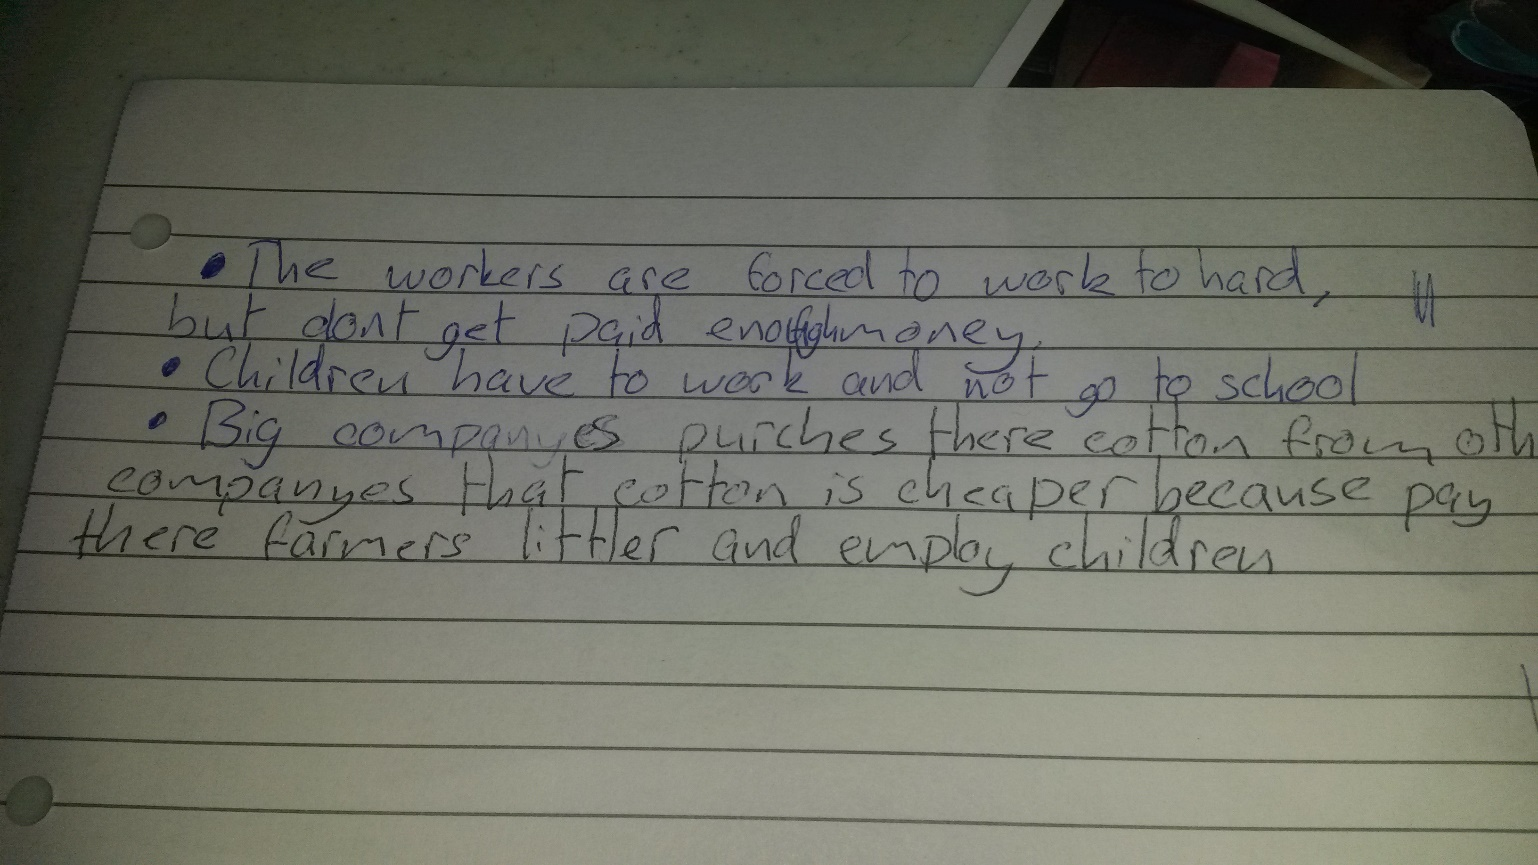 • The workers are forced to work to hard,
but dont get paid enough money.
• Children have to work and not go to school
• Big companyes purches there cotton from oth
companyes that cotton is cheaper because pay
there farmers littler and employ children